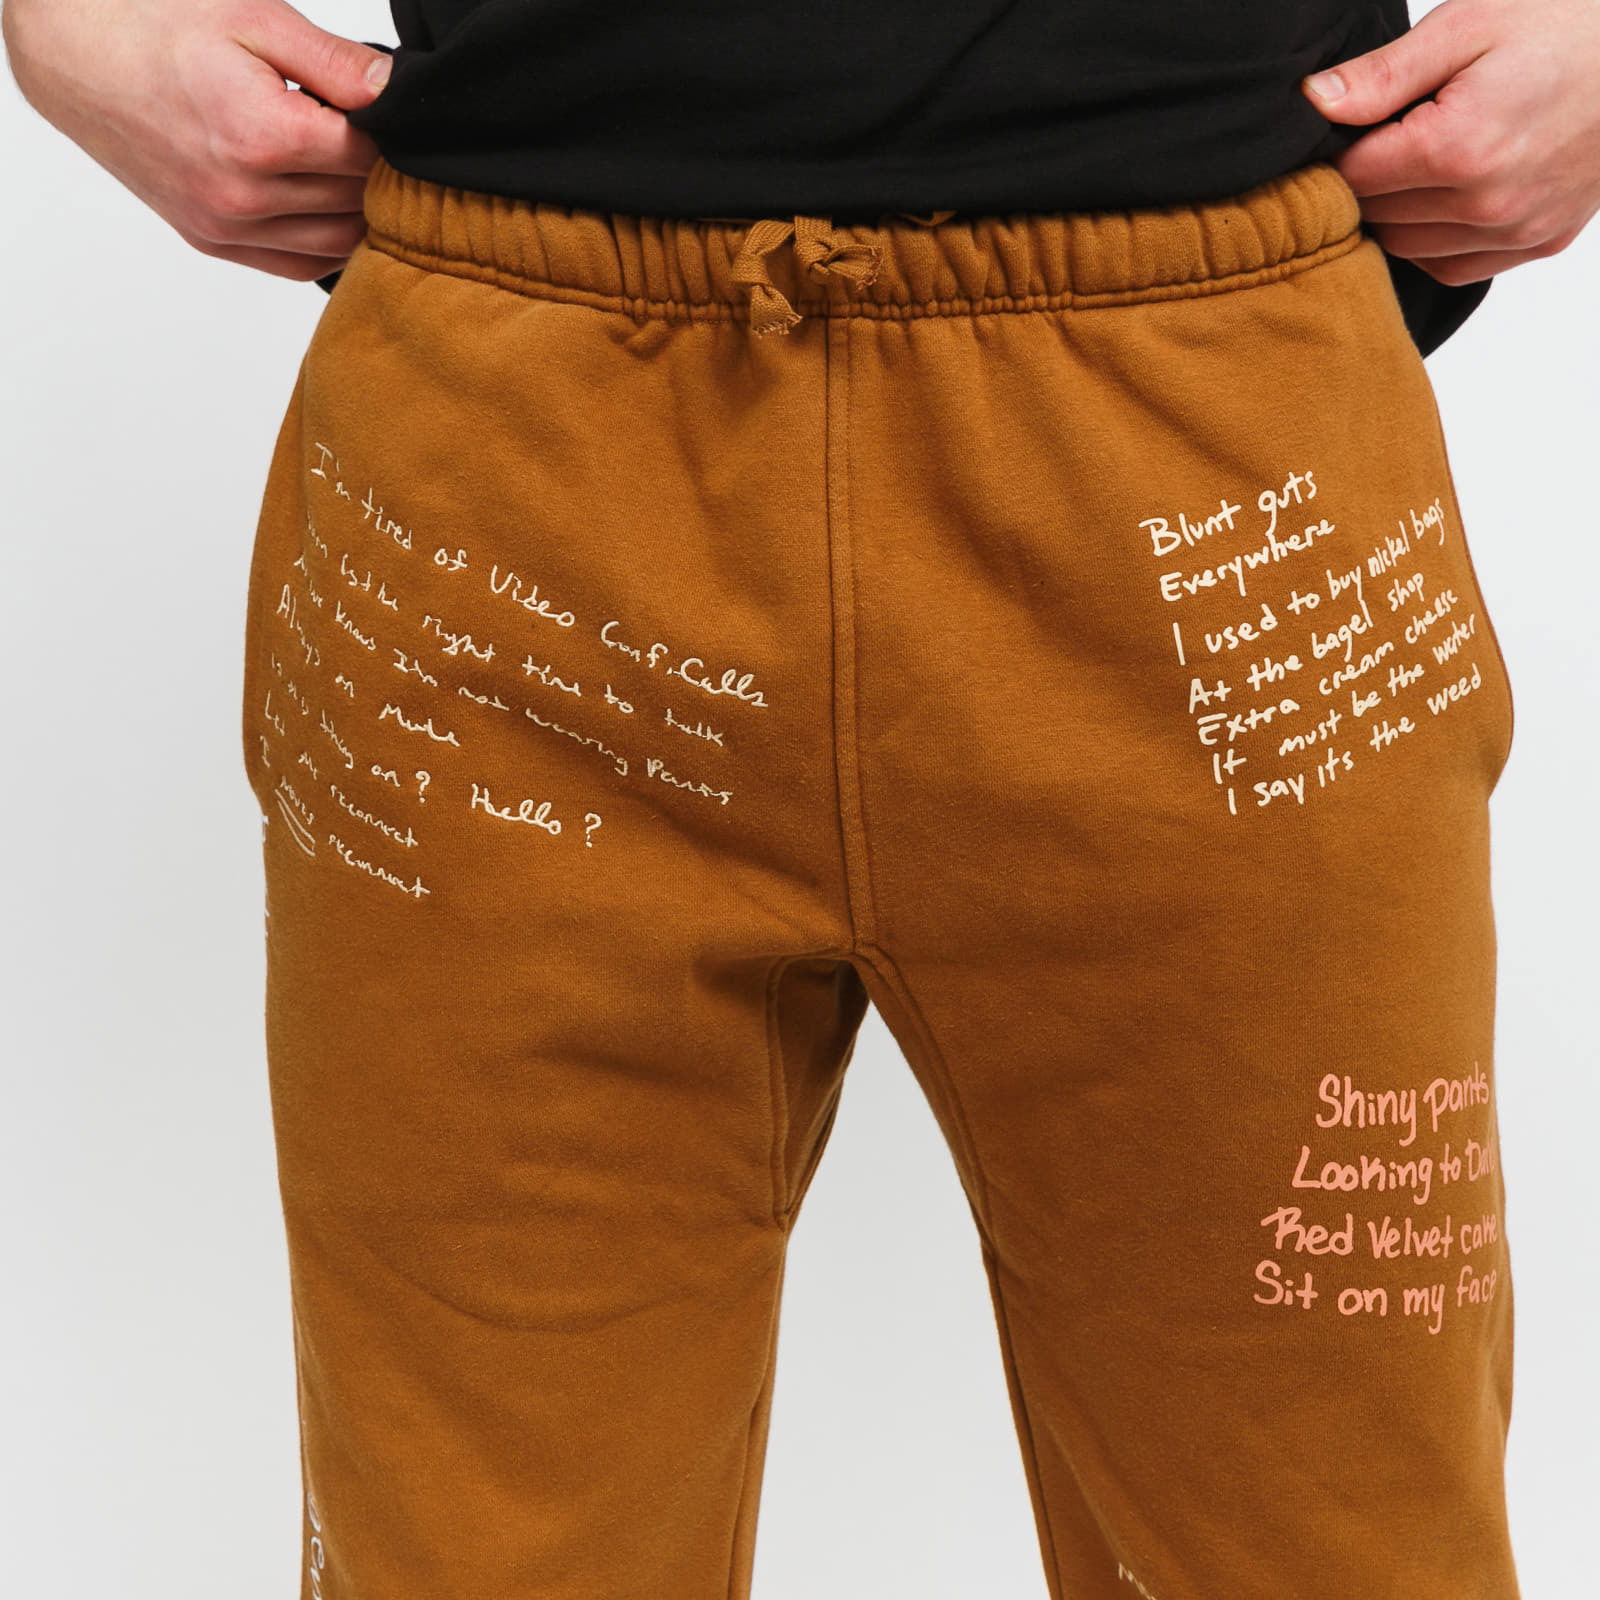 I'm tired of Video Conf. Calls
the right time to talk
we know I'm not wearing Pants
Always on Mute
is this thing on? Haello?
Let me reconnect
I never reconnect
Blunt guts
Everywhere
I used to buy nickel bags
At the bagel shop
Extra cream cheese
It must be the water
I say its the weed
Shiny pants
Looking to
Red Velvet cake
Sit on my face